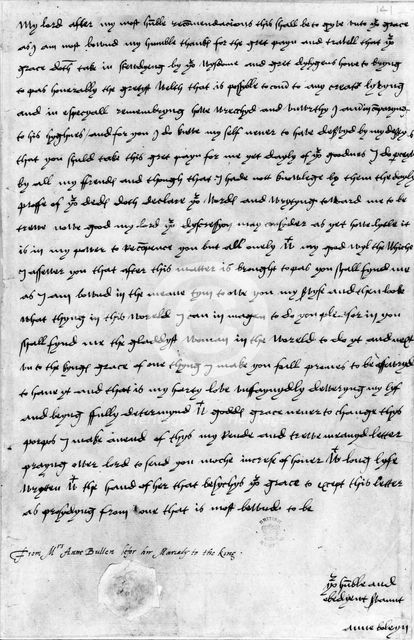 My lord after my most humble recomendacions this shall be to gyve unto yor grace
as I am most bownd my humble thanks for the gret payn and travell that yor
grace doth take in stewdyeng by yor wysdome and gret dylygens howe to bryng
to pas honerably the gretyst welth that is possible to com to any creatur lyvyng
and in especyall remembryng howe wrecchyd and unwrthy I am in comparyng
to his hyghnes and for you I do knowe my self never to have deservyd by my deserts
that you shuld take this gret payn for me yet dayly of yor goodnes I do perceyve
by all my frends and though that I had nott knowlege by them the dayly
proffe of yor deds doth declare yor words and wrytyng toward me to be
trewe nowe good my lord yor dyscressyon may consyder as yet howe lytle it
is in my power to recompence you but all onely wt my good wyl the whiche
I assewer you that after this matter is brought to pas you shall fynd me
as I am bownd in the meane tym to owe you my servyse and then looke
what thyng in this woreld I can immagen to do you plesor in you
shall fynd me the gladdyst woman in the woreld to do yt and next
unto the kyngs grace of one thyng I make you full promes to be assewryd
to have yt and that is my harty love unffaynydly dewering my lyf
and beyng ffully determynd wt godds grace never to change thys
porpos I make anend of thys my reude and trewe meanyd letter
prayng ower lord to send you moche increse of honer wt long lyfe
wrytten wt the hand of her that besychys yor grace to except this letter
as prosydyng from one that is most bownde to be
From Mrs Anne Bullen befor her Mariadg to the King.
BRITISH
yor humble and
obedyent servant
anne boleyn